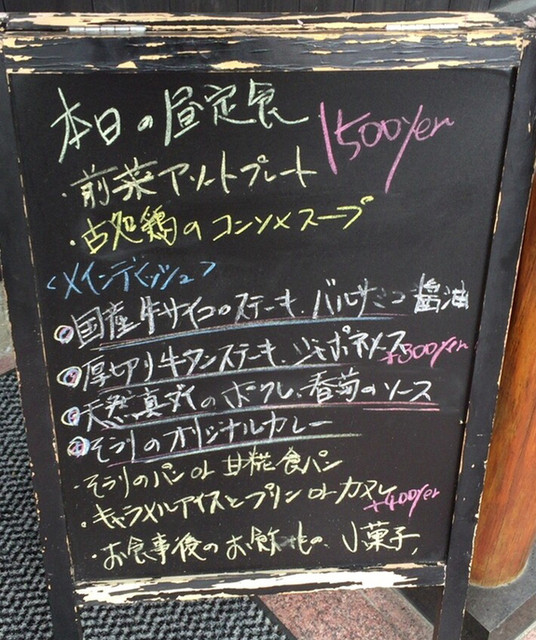 本日の昼定食 1500yen
・前菜アソートプレート
・古処鶏のコンソメスープ
<メインディッシュ>
①国産牛サイコロステーキ、バルサミコ醤油
②厚切り牛タンステーキ、ジャポネソース +300yen
③天然真ダイのポワレ、春菊のソース
④そうりのオリジナルカレー
・そうりのパン or 甘糀食パン
・キャラメルアイスとプリン or カヌレ +400yen
・お食事後のお飲みもの、小菓子、